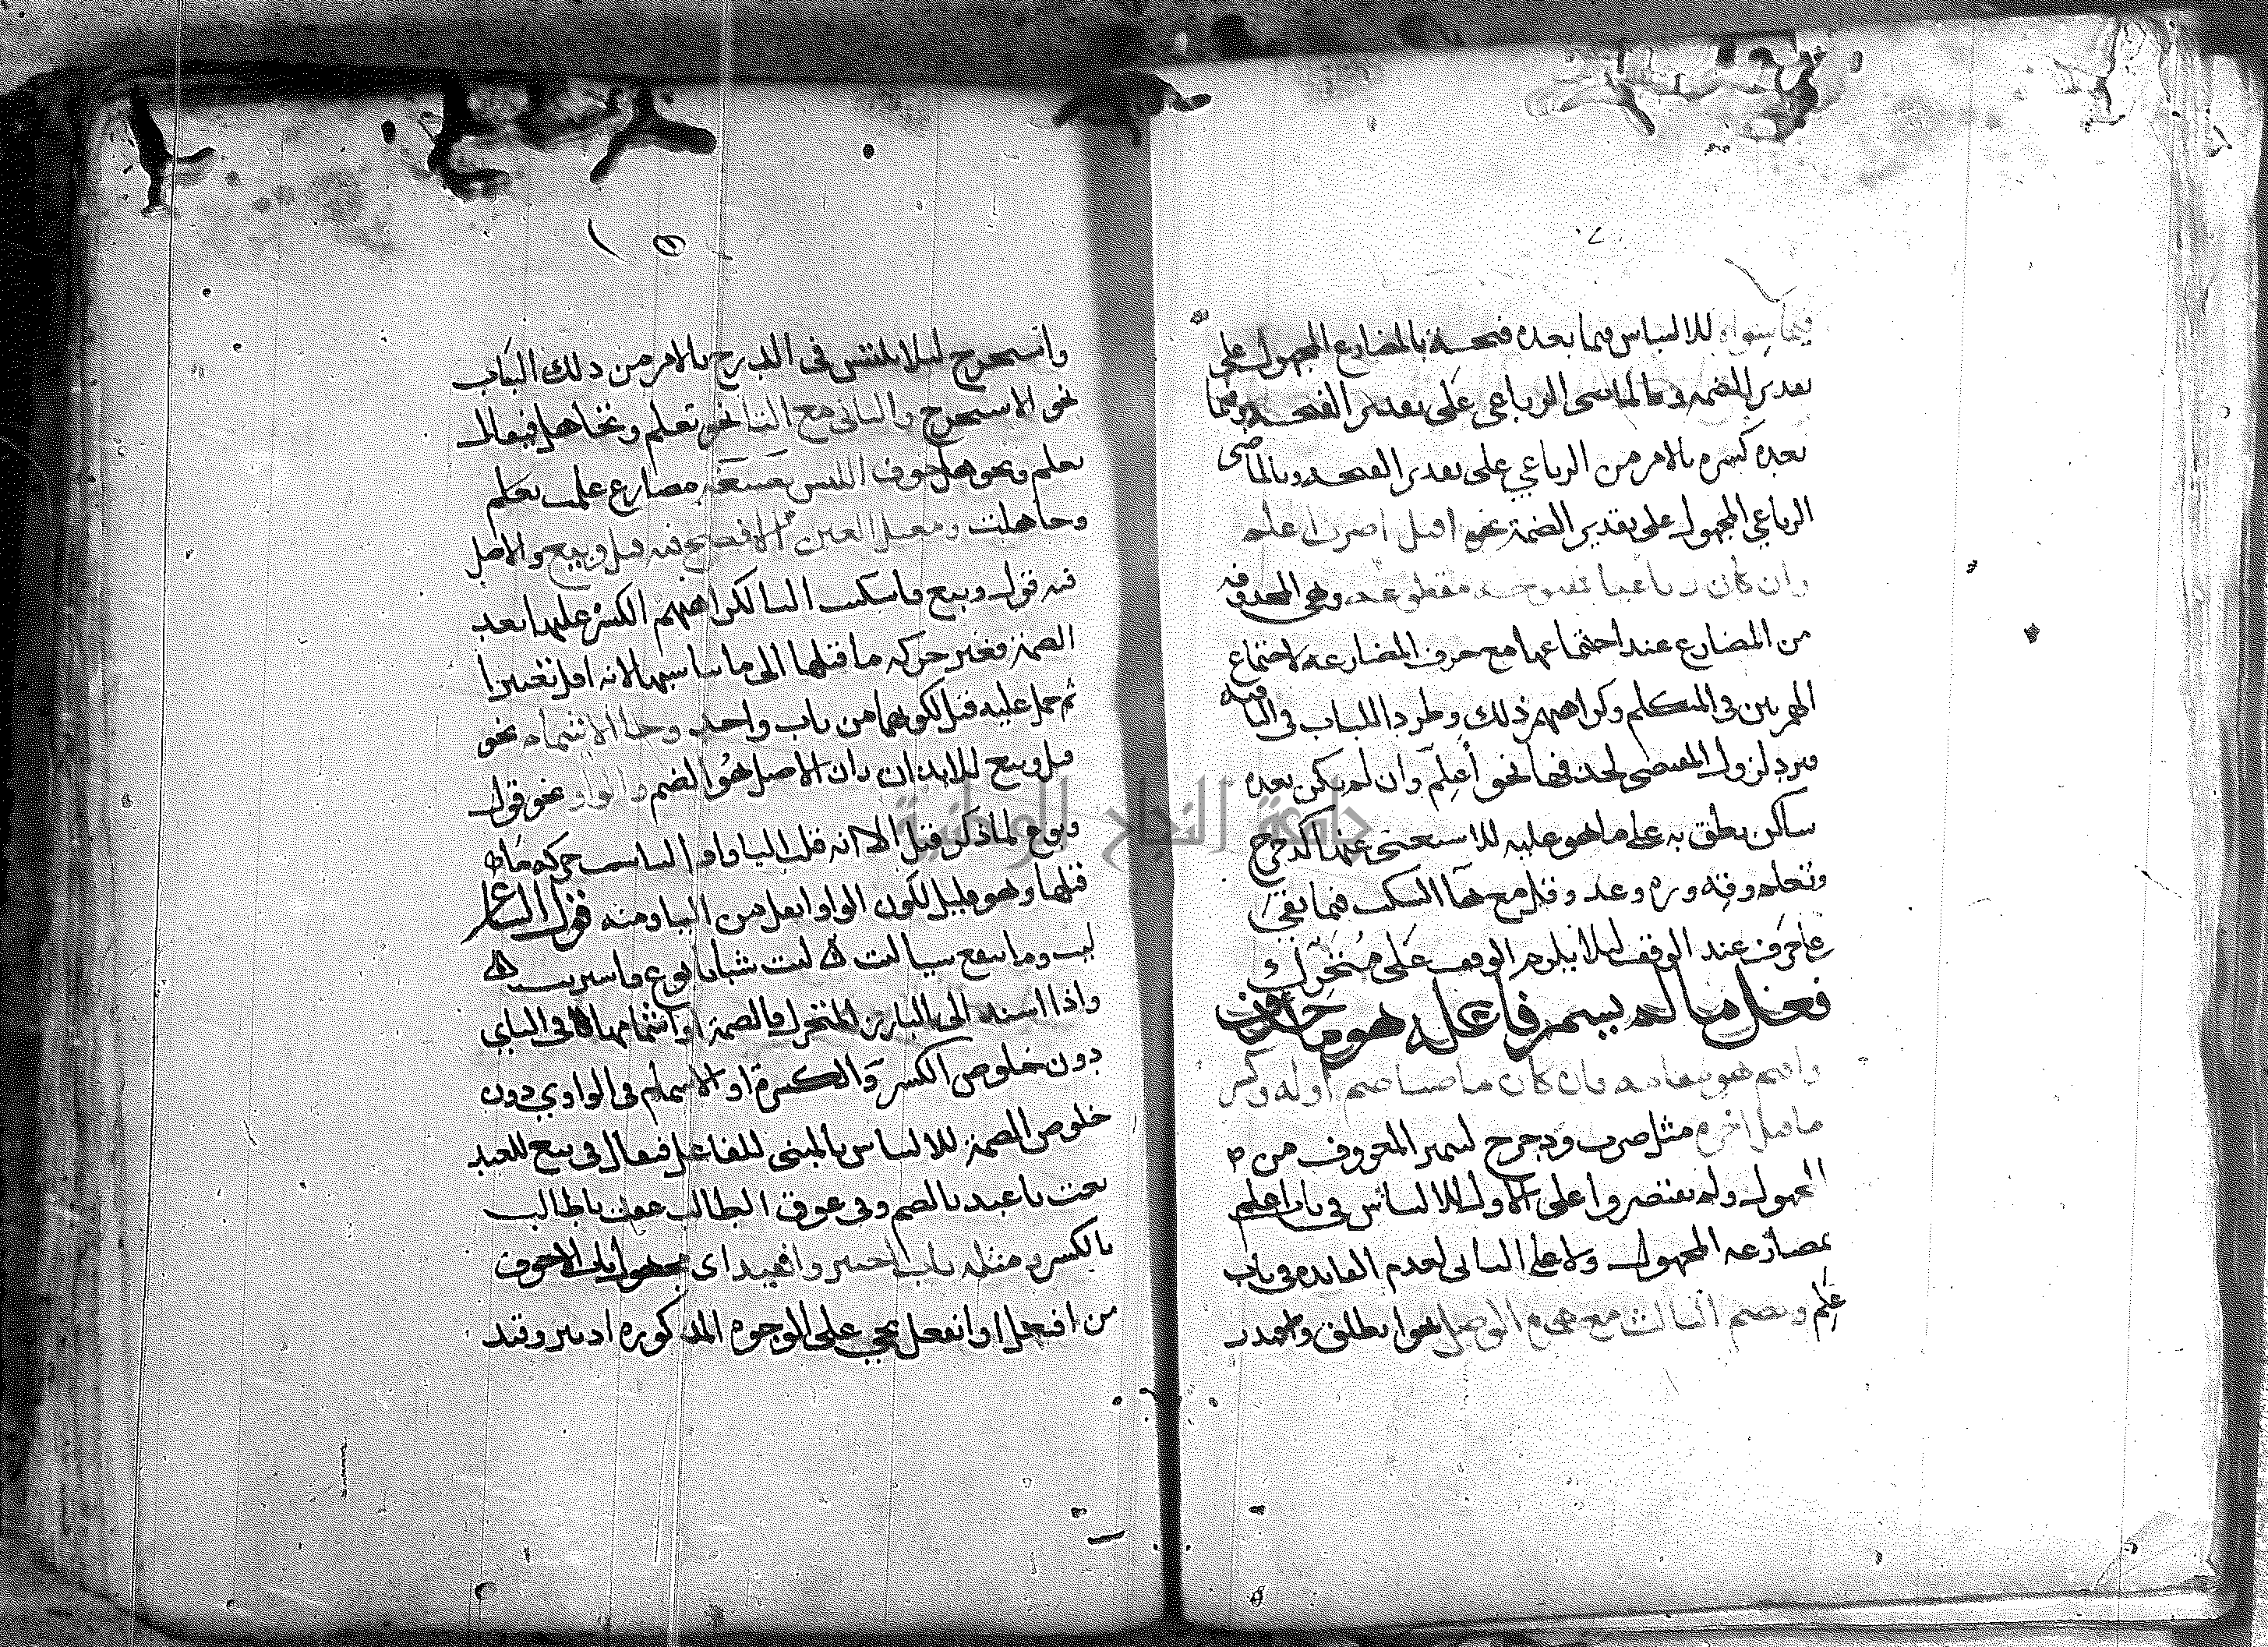 فيما سواه للالباس فيما بعده فتحة بالمضارع المجهول على
تقدير الضمة وبالماضى الرباعي على تقدير الفتحة وفيما
بعده كسره بالامر من الرباعي على تقدير الفتحه وبالماضى
الرباعي المجهول على تقدير الضمة نحو اقتل اضرب اعلم
وان كان رباعيا فمفتوحة مقطوعة وهي المحذوفه
من المضارع عند اجتماعها مع حرف المضارعة لاجتماع
الهمزتين في المتكلم وكراهتهم ذلك وطرد اللباب في الباقيه
فترد لزوال المقتضى لحذفها نحو أعلم وان لم يكن بعده
ساكن نطق به على ما هو عليه للاستغنى عنها كدحرج
وتعلم وقه وره وعد وقل مع هآ السكت فيما بقي
على حرف عند الوقف ليلا يلزم الوقف على متحرك
فعل ما لم يسم فاعله هو ما حذف
واقيم هو مقامه فان كان ماضيا ضم اوله وكسر
ما قبل اخره مثل ضرب ودحرج ليميز المعروف من
المجهول ولم يقتصروا على الاول للالباس في باب اعلم
بمضارعه المجهول ولا على الثاني لعدم الفايده في باب
علم ويضم الثالث مع همزة الوصل نحو انطلق واقتدر
واستخرج ليلا يلتبس في الدرج بالامر من ذلك الباب
نحو الا استخرج والثاني مع التا نحو تعلم وتجاهل فيقال
تعلم وتجوهل خوف اللبس بصيغة مضارع علمت تعلم
وجاهلت ومعتل العين الافصح فيه قيل وبيع والاصل
فيه قول وبيع فاسكنت اليا لكراهتهم الكسر عليها بعد
الضمة فغير حركه ما قبلها الى ما يناسبها لانه اقل تغييرا
ثم حمل عليه قيل لكونهما من باب واحد وجا الاشمام نحو
قيل وبيع للايذان بان الاصل هو الضم والواو نحو قول
وبوع لما ذكر قبل الا انه قلب اليا واوا لتناسب حركه ما
قبلها وهو قليل لكون الواو اثقل من اليا ومنه قول الشاعر
ليت وما ينفع شيا ليت ليت شبابا بوع فاشتريت
واذا اسند الى البارز المتحرك فالضمة او اشمامها في اليايي
دون خلوص الكسر والكسرة او الاشمام في الواوي دون
خلوص الضمة للالباس بالمبنى للفاعل فيقال في بيع للعبد
بعت يا عبد بالضم وفي عوق الطالب عقت يا طالب
بالكسر ومثله باب اختير وانقيد اى مجهول باب الاجوف
من افتعل او انفعل يجي على الوجوه المذكوره اختير وقيد